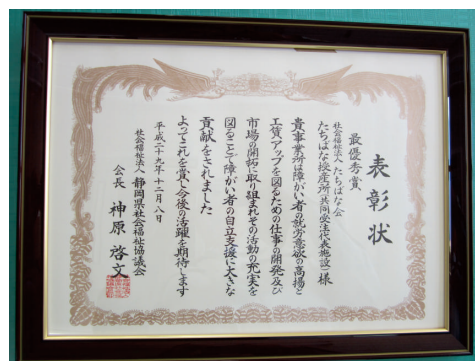 表彰状
最優秀賞
社会福祉法人 たちばな会
たちばな授産所(共同受注代表施設) 様
貴事業所は障がい者の就労意欲の高揚と
工賃アップを図るための仕事の開発及び
市場の開拓に取り組まれその活動の充実を
図ることで障がい者の自立支援に大きな
貢献をされました
よってこれを賞し今後の活躍を期待します
平成二十九年十二月八日
社会福祉法人 静岡県社会福祉協議会
会長 神原 啓文